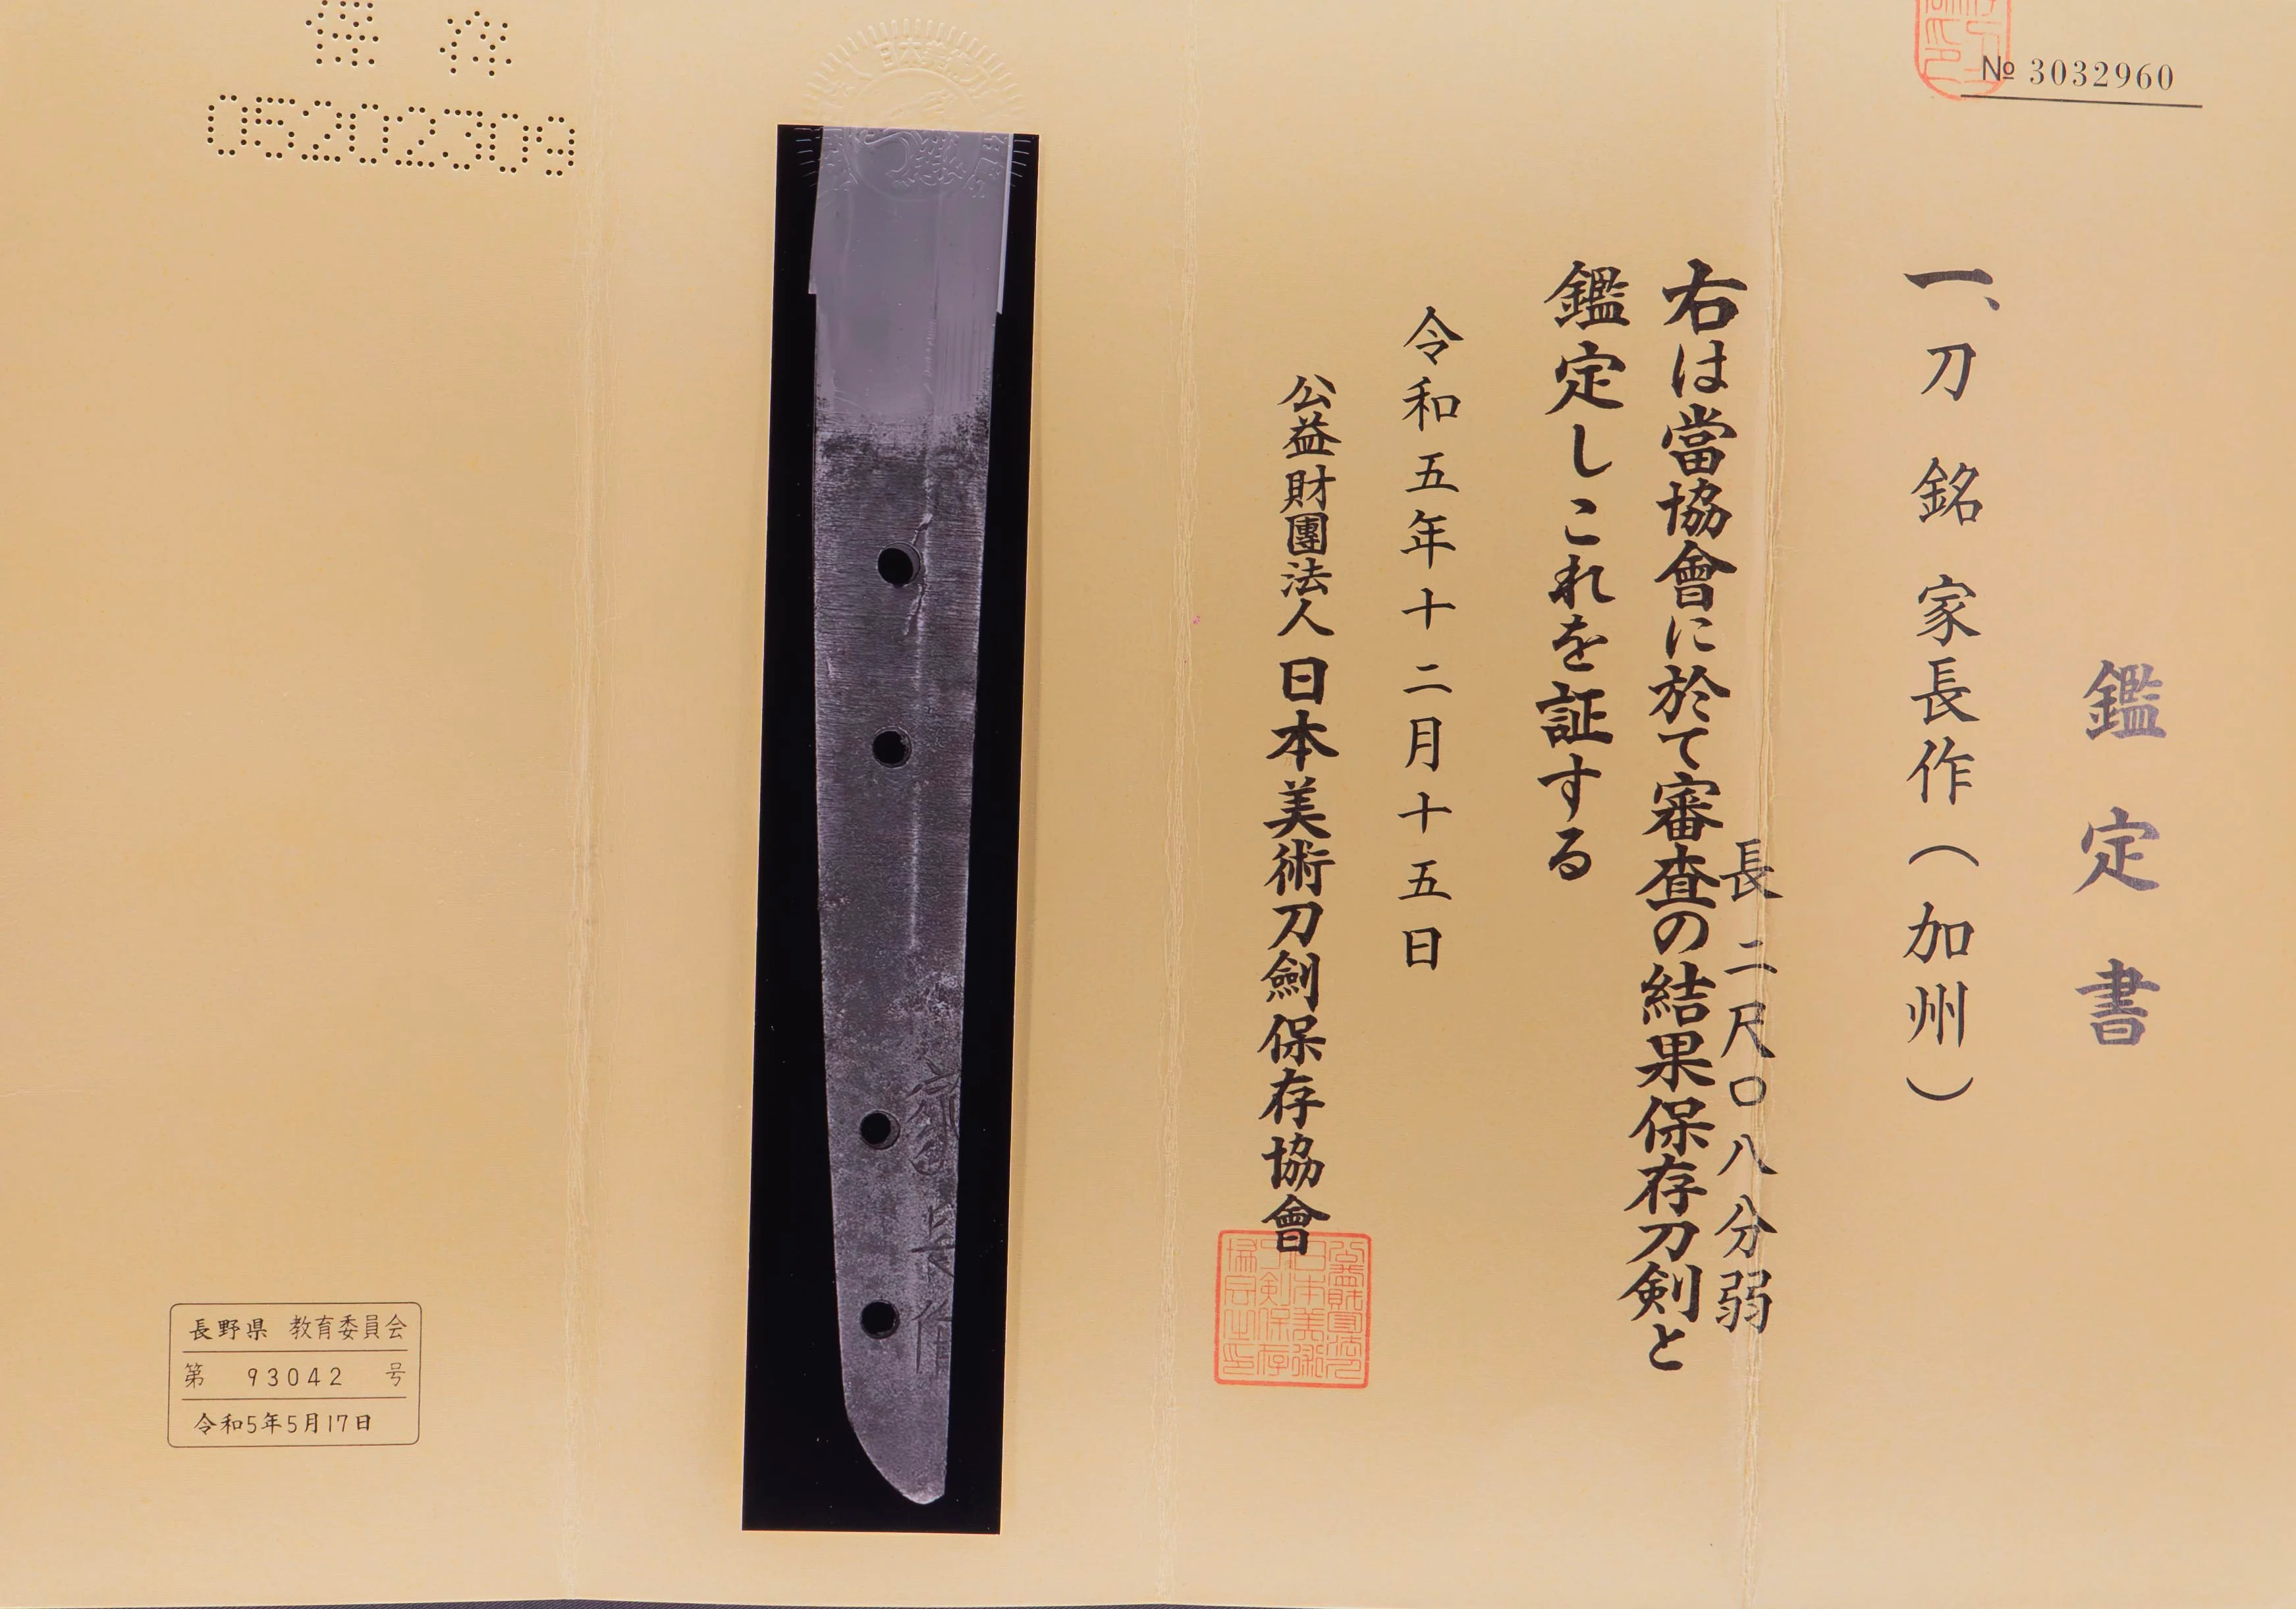 № 3032960
鑑定書
一、刀 銘 家長作(加州)
長 二尺〇八分弱
右は當協會に於て審査の結果保存刀剣と
鑑定しこれを証する
令和五年十二月十五日
公益財團法人 日本美術刀劍保存協會
家長作
保存
05202309
長野県 教育委員会
第 93042 号
令和5年5月17日